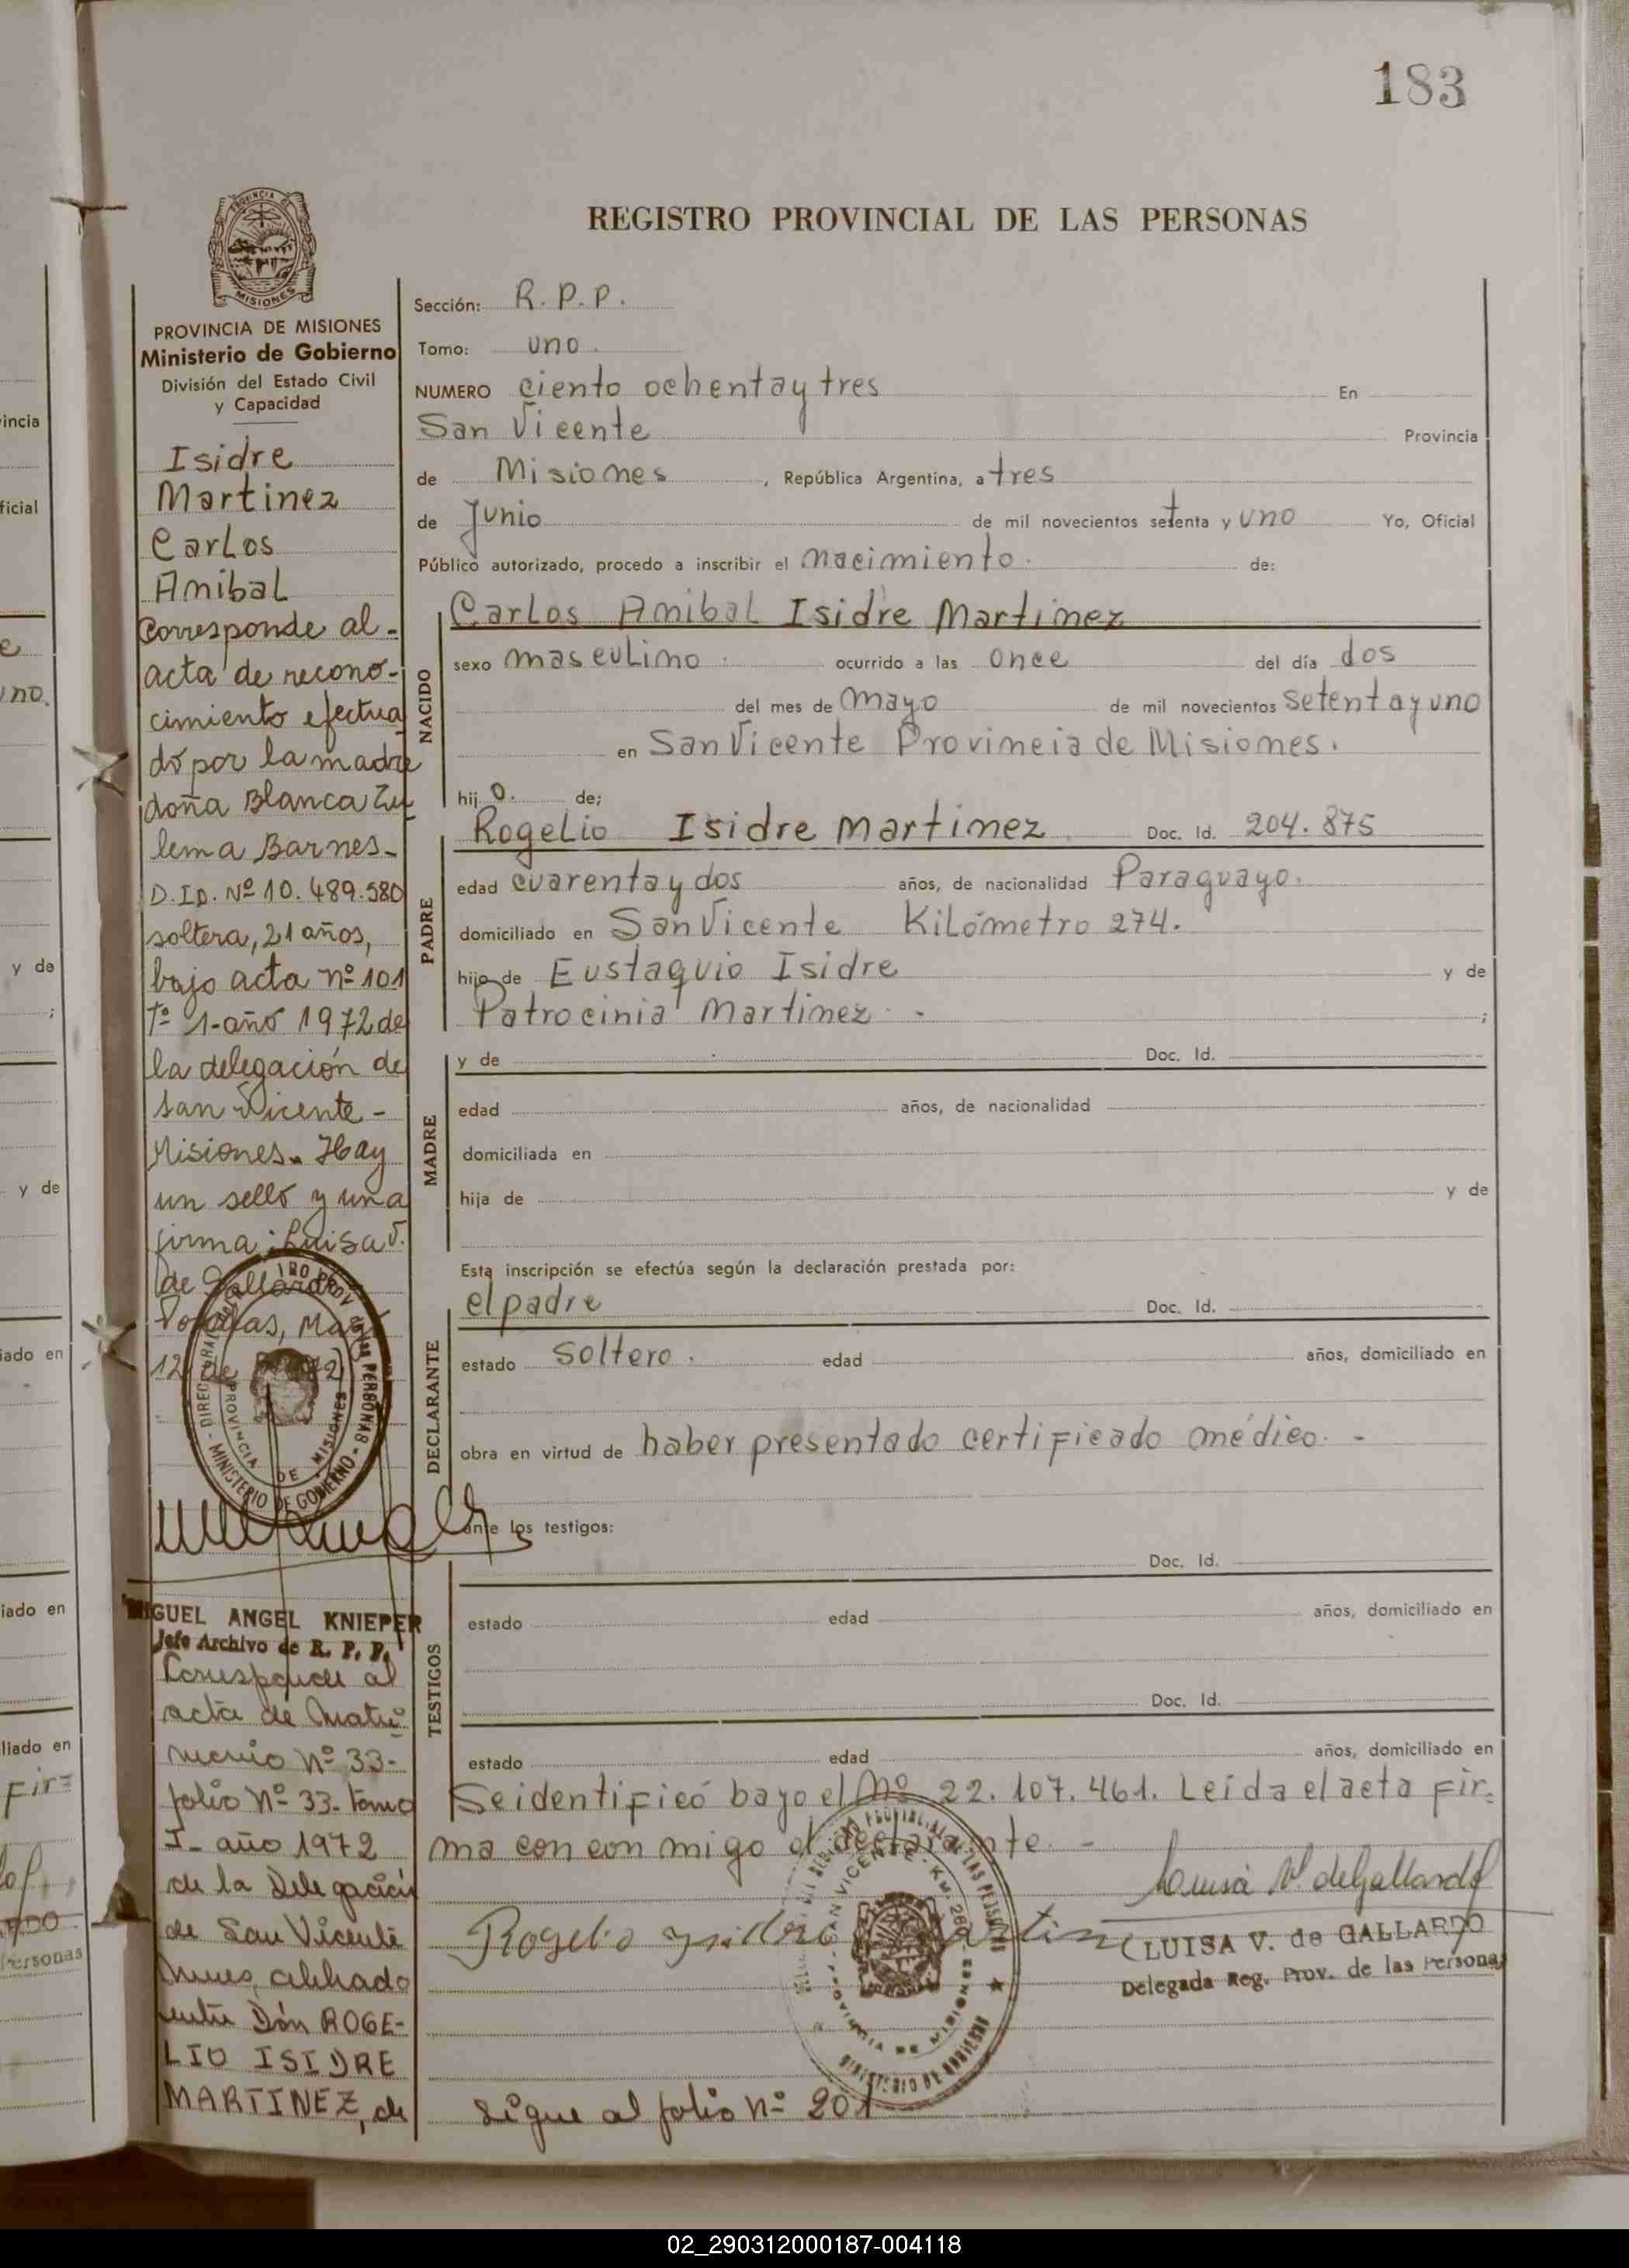 183
REGISTRO PROVINCIAL DE LAS PERSONAS
PROVINCIA DE MISIONES
Ministerio de Gobierno
División del Estado Civil
y Capacidad
Isidre
Martinez
Carlos
Anibal
Corresponde al
acta de recono-
cimiento efectua
do por la madre
doña Blanca Zu
lema Barnes-
D.ID. Nº 10.489.580
soltera, 21 años,
bajo acta nº 101
Tº 1-año 1972 de
la delegación de
San Vicente-
Misiones. Hay
un sello y una
firma: Luisa V.
de Gallardo
Posadas,
12 de
MIGUEL ANGEL KNIEPER
Jefe Archivo de R. P. P.
Corresponde al
acta de Matri
monio Nº 33-
folio Nº 33- tomo
I- año 1972
de la Delegación
de San Vicente
Mnes, celebrado
entre Dón ROGE-
LIO ISIDRE
MARTINEZ, de
Sección: R. P. P.
Tomo: uno.
NUMERO ciento ochenta y tres En
San Vicente Provincia
de Misiones, República Argentina, a tres
de Junio de mil novecientos setenta y uno Yo, Oficial
Público autorizado, procedo a inscribir el nacimiento. de:
NACIDO
Carlos Anibal Isidre Martinez
sexo masculino. ocurrido a las once del día dos
del mes de mayo de mil novecientos setenta y uno
en San Vicente Provincia de Misiones.
hij o. de;
PADRE
Rogelio Isidre Martinez Doc. Id. 204.875
edad cuarenta y dos años, de nacionalidad Paraguayo.
domiciliado en San Vicente Kilómetro 274.
hijo de Eustaquio Isidre y de
Patrocinia Martinez. - ;
MADRE
y de Doc. Id.
edad años, de nacionalidad
domiciliada en
hija de y de
Esta inscripción se efectúa según la declaración prestada por:
DECLARANTE
el padre Doc. Id.
estado soltero. edad años, domiciliado en
obra en virtud de haber presentado certificado médico. -
ante los testigos:
TESTIGOS
Doc. Id.
estado edad años, domiciliado en
Doc. Id.
estado edad años, domiciliado en
Se identificó bayo el Nº 22.107.461. Leída el acta fir=
ma con con migo el declarante. -
Luisa V. deGallardo
Rogelio ysidro
LUISA V. de GALLARDO
Delegada Reg. Prov. de las Personas
Sigue al folio nº 201
02_290312000187-004118